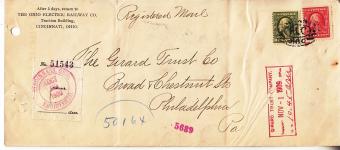 After 5 days, return to
THE OHIO ELECTRIC RAILWAY CO.
Traction Building,
CINCINNATI, OHIO.
Registered Mail
No. 51543
The Girard Trust Co
Broad & Chestnut St
Philadelphia
Pa
50164
5689
GIRARD TRUST COMPANY
NOV -1 1909